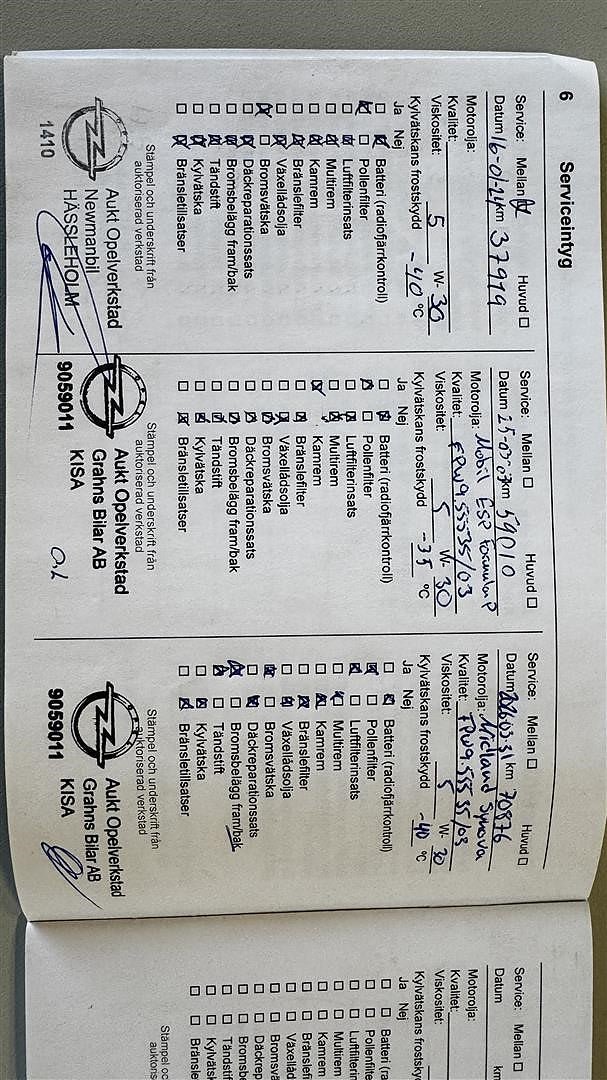 6 Serviceintyg
Service: Mellan Huvud
Datum 16-01-24 km 37919
Motorolja:
Kvalitet:
Viskositet: 5 W- 30
Kylvätskans frostskydd -40 °C
Ja Nej
Batteri (radiofjärrkontroll)
Pollenfilter
Luftfilterinsats
Multirem
Kamrem
Bränslefilter
Växellådsolja
Bromsvätska
Däckreparationssats
Bromsbelägg fram/bak
Tändstift
Kylvätska
Bränsletillsatser
Stämpel och underskrift från
auktoriserad verkstad
Aukt Opelverkstad
Newmanbil
HÄSSLEHOLM
1410
Service: Mellan Huvud
Datum 25-03-03 km 59010
Motorolja: Mobil ESP Formula P
Kvalitet: FPW9.55535/03
Viskositet: 5 W- 30
Kylvätskans frostskydd -35 °C
Ja Nej
Batteri (radiofjärrkontroll)
Pollenfilter
Luftfilterinsats
Multirem
Kamrem
Bränslefilter
Växellådsolja
Bromsvätska
Däckreparationssats
Bromsbelägg fram/bak
Tändstift
Kylvätska
Bränsletillsatser
Stämpel och underskrift från
auktoriserad verkstad
Aukt Opelverkstad
Grahns Bilar AB
9059011 KISA
Service: Mellan Huvud
Datum km 70876
Motorolja: Midland Synova
Kvalitet: FPW9.55535/03
Viskositet: 5 W- 30
Kylvätskans frostskydd -40 °C
Ja Nej
Batteri (radiofjärrkontroll)
Pollenfilter
Luftfilterinsats
Multirem
Kamrem
Bränslefilter
Växellådsolja
Bromsvätska
Däckreparationssats
Bromsbelägg fram/bak
Tändstift
Kylvätska
Bränsletillsatser
Stämpel och underskrift från
auktoriserad verkstad
Aukt Opelverkstad
Grahns Bilar AB
9059011 KISA
Service: Mellan
Datum km
Motorolja:
Kvalitet:
Viskositet:
Kylvätskans frostsky
Ja Nej
Batteri (ra
Pollenfilter
Luftfilterin
Multirem
Kamrem
Bränslefi
Växellåd
Bromsvä
Däckrep
Bromsb
Tändstift
Kylväts
Bränsle
Stämpel oc
auktoris